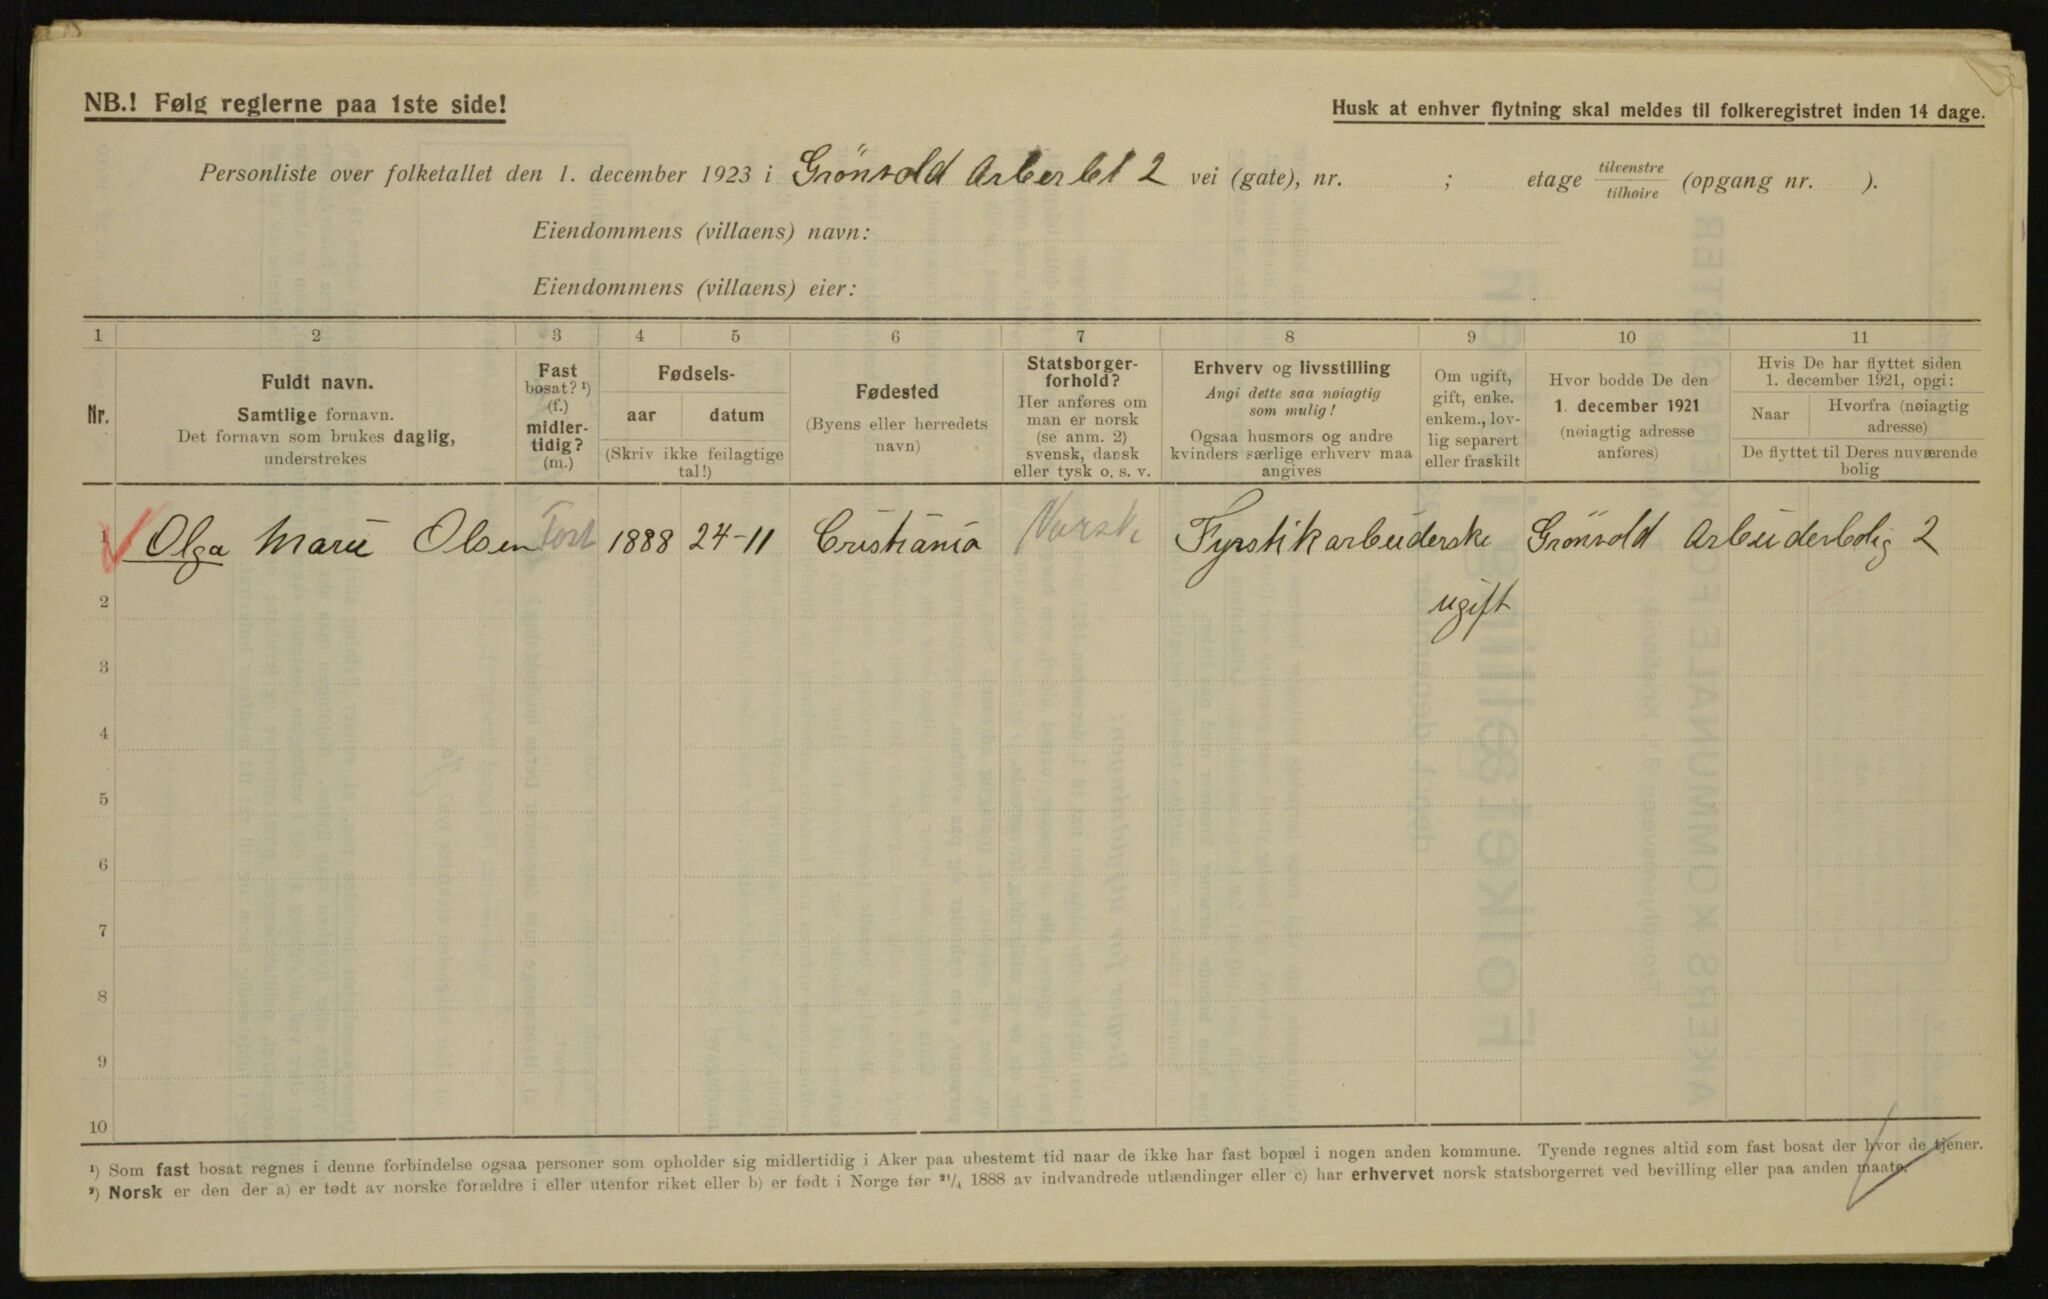 NB.! Følg reglerne paa 1ste side!
Husk at enhver flytning skal meldes til folkeregistret inden 14 dage.
Personliste over folketallet den 1. december 1923 i Grönvold Arberbl 2 vei (gate), nr. ; etage tilvenstre tilhøire (opgang nr. ).
Eiendommens (villaens) navn:
Eiendommens (villaens) eier:
1 2 3 4 5 6 7 8 9 10 11
Nr.
Fuldt navn.
Samtlige fornavn.
Det fornavn som brukes daglig,
understrekes
Fast
bosat? ¹)
(f.)
midler-
tidig?
(m.)
Fødsels-
aar datum
(Skriv ikke feilagtige
tal!)
Fødested
(Byens eller herredets
navn)
Statsborger-
forhold?
Her anføres om
man er norsk
(se anm. 2)
svensk, dansk
eller tysk o. s. v.
Erhverv og livsstilling
Angi dette saa nøiagtig
som mulig!
Ogsaa husmors og andre
kvinders særlige erhverv maa
angives
Om ugift,
gift, enke.
enkem., lov-
lig separert
eller fraskilt
Hvor bodde De den
1. december 1921
(nøiagtig adresse
anføres)
Hvis De har flyttet siden
1. december 1921, opgi:
Naar
Hvorfra (nøiagtig
adresse)
De flyttet til Deres nuværende
bolig
1 Olga Marie Olsen Fast 1888 24-11 Cristiania Norsk Fyrstikarbeiderske Grönvold Arbeiderbolig 2
2 ugift
3
4
5
6
7
8
9
10
¹) Som fast bosat regnes i denne forbindelse ogsaa personer som opholder sig midlertidig i Aker paa ubestemt tid naar de ikke har fast bopæl i nogen anden kommune. Tyende regnes altid som fast bosat der hvor de tjener.
²) Norsk er den der a) er født av norske forældre i eller utenfor riket eller b) er født i Norge før ²¹/₄ 1888 av indvandrede utlændinger eller c) har erhvervet norsk statsborgerret ved bevilling eller paa anden maate.